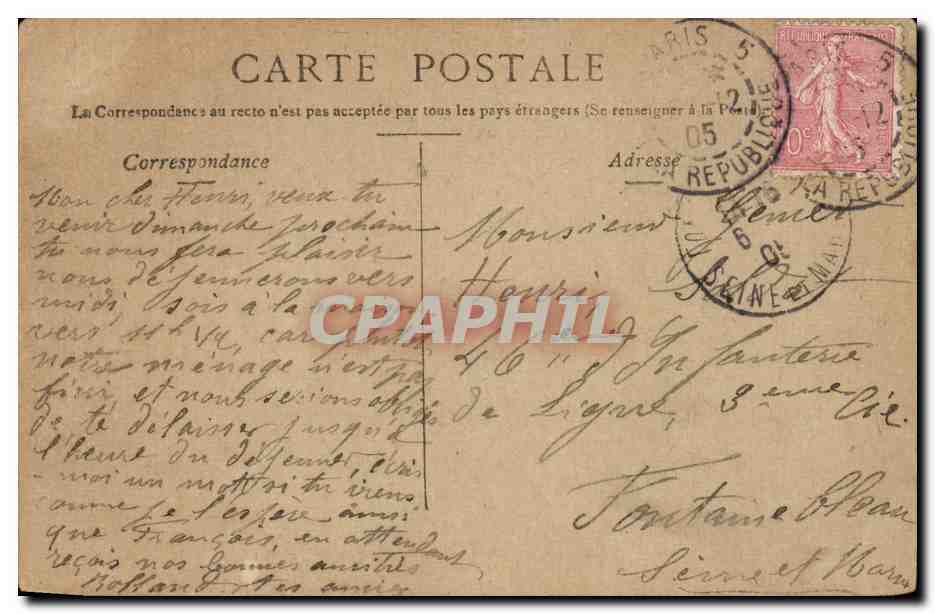 CARTE POSTALE
La Correspondance au recto n'est pas acceptée par tous les pays étrangers (Se renseigner à la Poste)
Correspondance
Mon cher Henri, veux tu
venir dimanche prochain
tu nous fera plaisir
nous déjeunerons vers
midi, sois à la maison
vers 11h 1/4, car
notre ménage n'est pas
fini et nous serions obligés
de te délaisser jusqu'à
l'heure du déjeuner, écris
-moi un mot si tu viens
comme je l'espère ainsi
que François, en attendant
reçois nos bonnes amitiés
Rolland tes amis
Adresse
Monsieur
Henri
46e d'Infanterie
de Ligne, 3eme Cie
Fontainebleau
Seine et Marne
PARIS 5
12
05
RÉPUBLIQUE
REPUBLIQUE FRANCAISE
10c
5
12
RÉPUBLIQUE
6
05
SEINE ET MAR
CPAPHIL